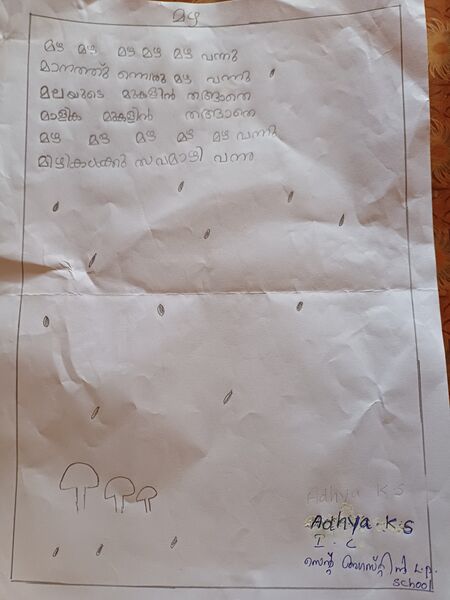 മഴ
മഴ മഴ മഴ മഴ മഴ വന്നു
മാനത്ത് നിന്നൊരു മഴ വന്നു
മലയുടെ മുകളിൽ തങ്ങാതെ
മാളിക മുകളിൽ തങ്ങാതെ
മഴ മഴ മഴ മഴ മഴ വന്നു
വന്നു
Adhya K S
Adhya. K S
I. C
സെന്റ് അഗസ്റ്റിൻ L.P.
School